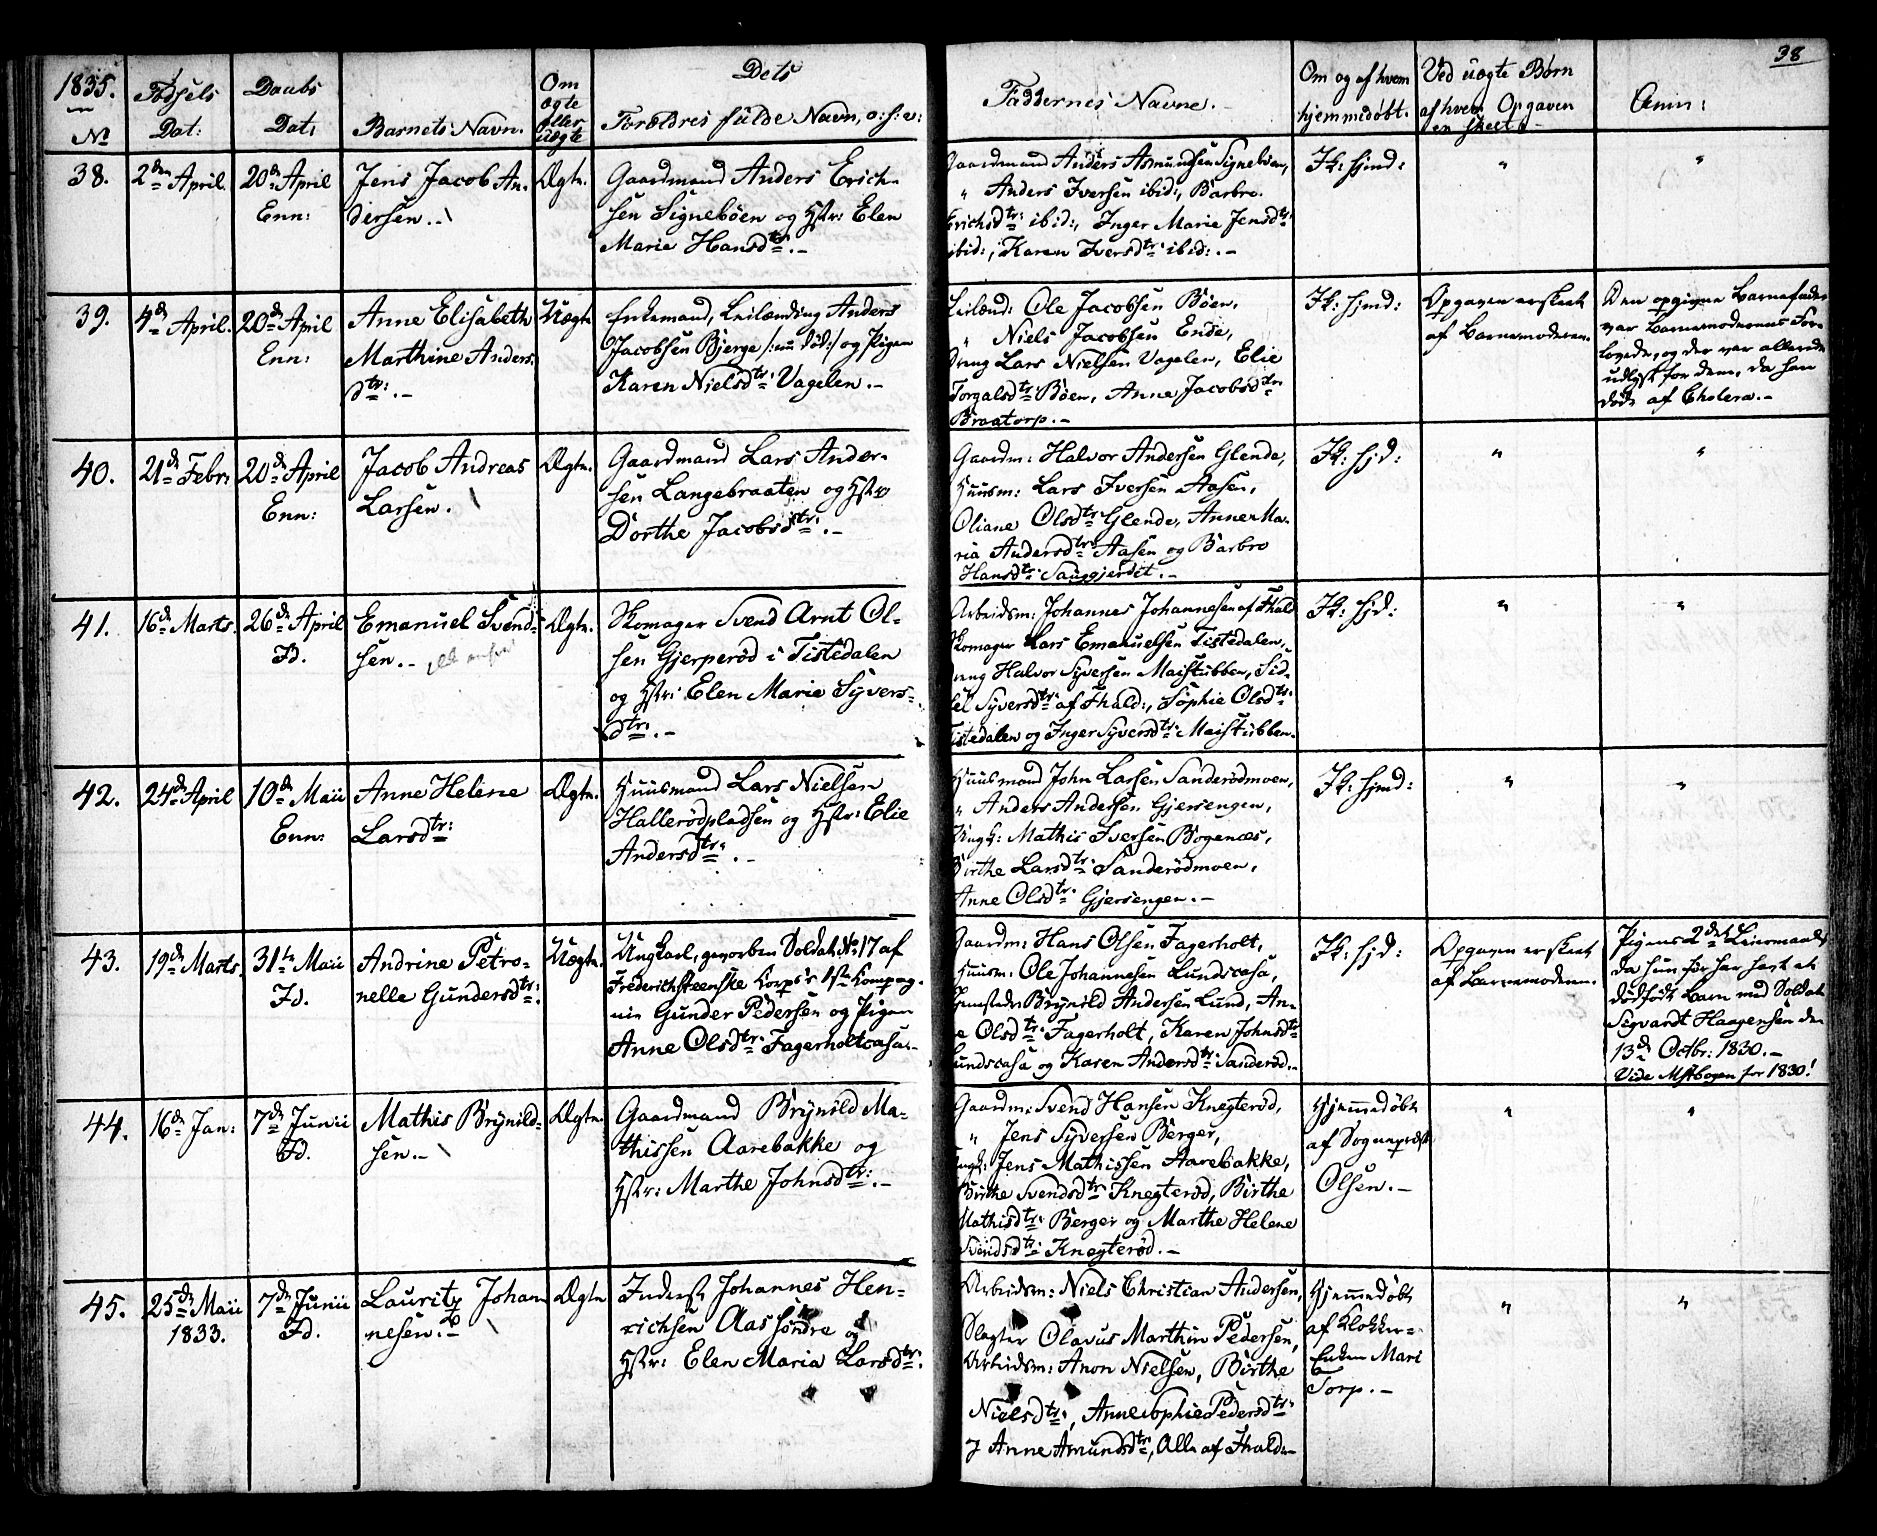 1835.
No
Födsels
Dat:
Daabs
Dat:
Barnets Navn.
Om
ægte
eller
uægte
Dets
Forældres fulde Navn, o: s: v:
Faddernes Navne.
Om og af hvem
hjemmedøbt.
Ved uægte Børn
af hvem Opgaven
er skeet
Anm:
38
38.
2den April
20de April
Enn:
Jens Jacob An-
dersen.
Ægte.
Gaardmand Anders Erich-
sen Signebøen og Hstr: Elen
Marie Hansdtr:.-
Gaardmand Anders Asmundsen Signebøen,
" Anders Iversen ibid:, Barbro
Erichsdtr: ibid:, Inger Marie Jensdtr:
ibid:, Karen Iversdtr: ibid:.-
Ik: hjmd:
"
"
39.
4de April.
20de April
Enn:
Anne Elisabeth
Marthine Anders-
dtr:.-
Uægte
Enkemand, Leilænding Anders
Jacobsen Bjerge /: nu död:/ og Pigen
Karen Nielsdtr: Vagelen.-
Leilænd: Ole Jacobsen Bøen,
" Niels Jacobsen Ende,
Dreng Lars Nielsen Vagelen, Elie
Torgalsdtr: Bøen, Anne Jacobsdtr:
Braatorp.-
Ik: hjmd:
Opgaven er skeet
af Barnemoderen.
Den opgivne Barnefader
var Barnemoderens For-
lovede, og der var allerede
udlyst for dem, da han
døde af Cholera.-
40.
21de Febr:
20de April
Enn:
Jacob Andreas
Larsen.
Ægte.
Gaardmand Lars Ander-
sen Langebraaten og Hstr:
Dorthe Jacobsdtr:.-
Gaardm: Halvor Andersen Glende,
Huusm: Lars Iversen Aasen,
Oliane Olsdtr: Glende, Anne Ma-
ria Andersdtr: Aasen og Barbro
Hansdtr: Sauggjerdet.-
Ik: hjd:
"
"
41.
16de Marts.
26de April
Fd.
Emanuel Svend-
sen.-
Ægte.
Skomager Svend Arnt Ol-
sen Gjerperød i Tistedalen
og Hstr: Elen Marie Syvers-
dtr:.-
Arbeidsm: Johannes Johannesen af Fhald
Skomager Lars Emanuelsen Tistedalen,
Dreng Halvor Syversen Maistubben, Sid-
sel Syversdtr: af Fhald:, Sophie Olsdtr:
Tistedalen og Inger Syversdtr: Maistubben.
Ik: hjd:
"
"
42.
24de April
10de Maii
Enn:
Anne Helene
Larsdtr:
Ægte.
Huusmand Lars Nielsen
Hallerødpladsen og Hstr: Elie
Andersdtr:.-
Huusmand John Larsen Sanderødmoen,
" Anders Andersen Gjersengen,
Ungk: Mathis Iversen Bogenæs,
Birthe Larsdtr: Sanderødmoen,
Anne Olsdtr: Gjersengen.-
Ik: hjmd:
"
"
43.
19de Marts.
31te Maii
Fd.
Andrine Petro-
nelle Gundersdtr:
Uægte.
Ungkarl, gevorben Soldat No 17 af
Frederichsteenske Korps's 1ste Kompag-
nie Gunder Pedersen og Pigen
Anne Olsdtr: Fagerholtcasa.-
Gaardm: Hans Olsen Fagerholt,
Huusm: Ole Johannesen Lundscasa,
Brynild Andersen Lund, An-
ne Olsdtr: Fagerholt, Karen Johnsdtr:
Lundscasa og Karen Andersdtr: Sanderød.-
Ik: hjd:
Opgaven er skeet
af Barnemoderen.
Pigens 2det Leiermaal,
da hun før har havt et
dødfødt Barn med Soldat
Sigvardt Haagensen den
13de Octbr: 1830.-
Vide Mstbogen for 1830!
44.
16de Jan:
7de Junii
Fd.
Mathis Brynild-
sen.-
Ægte.
Gaardmand Brynild Ma-
thissen Aarebakke og
Hstr: Marthe Johnsdtr:.-
Gaardm: Svend Hansen Knegterød,
" Jens Syversen Berger,
Ungk: Jens Mathissen Aarebakke,
Birthe Svendsdtr: Knegterød, Birthe
Mathisdtr: Berger og Marthe Helene
Svendsdtr: Knegterød.-
Hjemmedøbt
af Sognepræst
Olsen.-
"
"
45.
25de Maii
1833.
7de Junii
Fd.
Lauritz Johan-
nesen.
Ægte
Inderst Johannes Hen-
richsen Aas søndre og
Hstr: Elen Maria Larsdtr:.
Arbeidsm: Niels Christian Andersen,
Slagter Olavus Marthin Pedersen,
Arbeidsm: Anon Nielsen, Birthe
Nielsdtr:, Anne Sophie Pedersdtr:
Anne Amundsdtr:, Alle af Fhald.-
Hjemmedøbt
af Klokker-
Enken Mari
Torp.-
"
"